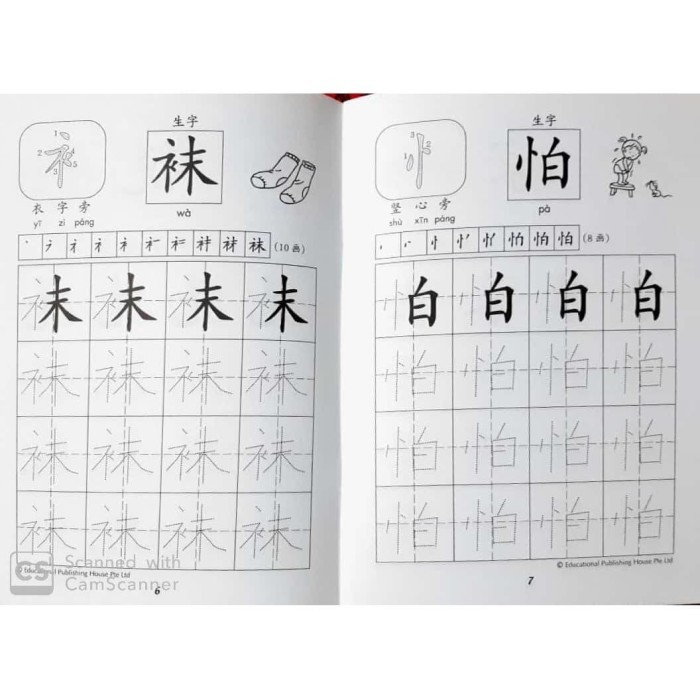 生字
袜
衣字旁
yī zì páng
wà
(10画)
末 末 末 末
袜 袜 袜 袜
袜 袜 袜 袜
袜 袜 袜 袜
© Educational Publishing House Pte Ltd
6
CS Scanned with
CamScanner
生字
怕
竖心旁
shù xīn páng
pà
(8画)
白 白 白 白
怕 怕 怕 怕
怕 怕 怕 怕
怕 怕 怕 怕
© Educational Publishing House Pte Ltd
7